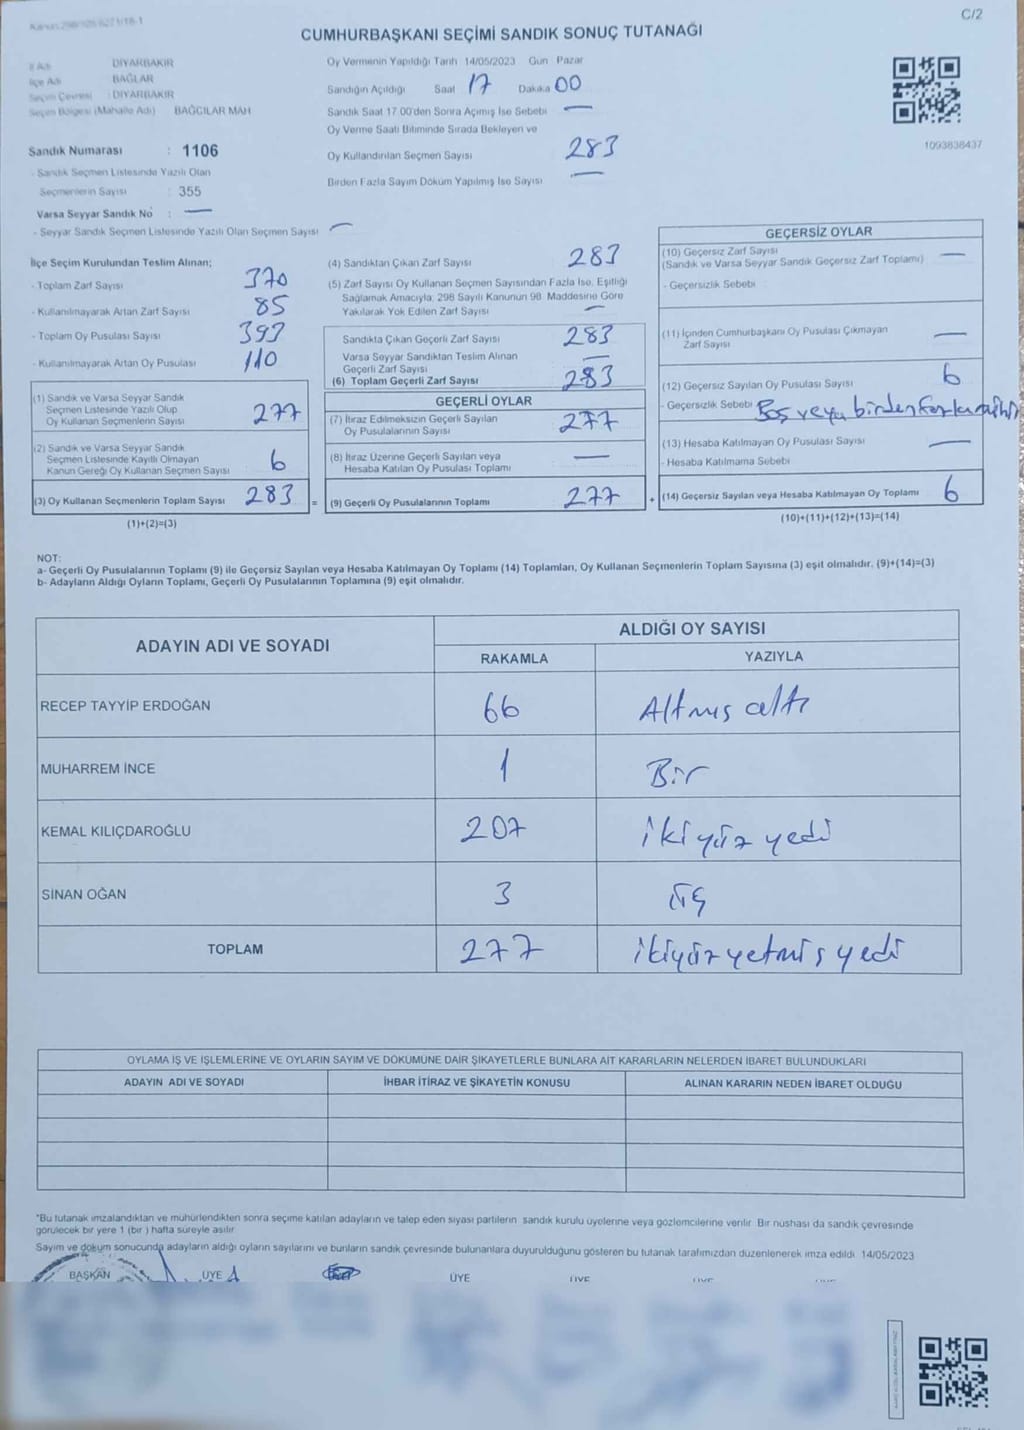 Kanun:298/105/6271/18-1
C/2
CUMHURBAŞKANI SEÇİMİ SANDIK SONUÇ TUTANAĞI
İl Adı : DİYARBAKIR
İlçe Adı : BAĞLAR
Seçim Çevresi : DİYARBAKIR
Seçim Bölgesi (Mahalle Adı) BAĞCILAR MAH
Sandık Numarası : 1106
- Sandık Seçmen Listesinde Yazılı Olan
Seçmenlerin Sayısı : 355
Varsa Seyyar Sandık No : —
- Seyyar Sandık Seçmen Listesinde Yazılı Olan Seçmen Sayısı —
Oy Vermenin Yapıldığı Tarih 14/05/2023 Gün Pazar
Sandığın Açıldığı Saat 17 Dakika 00
Sandık Saat 17.00'den Sonra Açımış İse Sebebi —
Oy Verme Saati Bitiminde Sırada Bekleyen ve
Oy Kullandırılan Seçmen Sayısı 283
Birden Fazla Sayım Döküm Yapılmış İse Sayısı —
1093838437
İlçe Seçim Kurulundan Teslim Alınan;
- Toplam Zarf Sayısı 370
- Kullanılmayarak Artan Zarf Sayısı 85
- Toplam Oy Pusulası Sayısı 393
- Kullanılmayarak Artan Oy Pusulası 110
(1) Sandık ve Varsa Seyyar Sandık
Seçmen Listesinde Yazılı Olup
Oy Kullanan Seçmenlerin Sayısı 277
(2) Sandık ve Varsa Seyyar Sandık
Seçmen Listesinde Kayıtlı Olmayan
Kanun Gereği Oy Kullanan Seçmen Sayısı 6
(3) Oy Kullanan Seçmenlerin Toplam Sayısı 283 =
(1)+(2)=(3)
(4) Sandıktan Çıkan Zarf Sayısı 283
(5) Zarf Sayısı Oy Kullanan Seçmen Sayısından Fazla İse, Eşitliği
Sağlamak Amacıyla, 298 Sayılı Kanunun 98. Maddesine Göre
Yakılarak Yok Edilen Zarf Sayısı —
Sandıkta Çıkan Geçerli Zarf Sayısı 283
Varsa Seyyar Sandıktan Teslim Alınan
Geçerli Zarf Sayısı —
(6) Toplam Geçerli Zarf Sayısı 283
GEÇERLİ OYLAR
(7) İtiraz Edilmeksizin Geçerli Sayılan
Oy Pusulalarının Sayısı 277
(8) İtiraz Üzerine Geçerli Sayılan veya
Hesaba Katılan Oy Pusulası Toplamı —
(9) Geçerli Oy Pusulalarının Toplamı 277 +
GEÇERSİZ OYLAR
(10) Geçersiz Zarf Sayısı —
(Sandık ve Varsa Seyyar Sandık Geçersiz Zarf Toplamı)
- Geçersizlik Sebebi
(11) İçinden Cumhurbaşkanı Oy Pusulası Çıkmayan
Zarf Sayısı —
(12) Geçersiz Sayılan Oy Pusulası Sayısı 6
- Geçersizlik Sebebi Boş veya birden fazla
(13) Hesaba Katılmayan Oy Pusulası Sayısı —
- Hesaba Katılmama Sebebi
(14) Geçersiz Sayılan veya Hesaba Katılmayan Oy Toplamı 6
(10)+(11)+(12)+(13)=(14)
NOT:
a- Geçerli Oy Pusulalarının Toplamı (9) ile Geçersiz Sayılan veya Hesaba Katılmayan Oy Toplamı (14) Toplamları, Oy Kullanan Seçmenlerin Toplam Sayısına (3) eşit olmalıdır. (9)+(14)=(3)
b- Adayların Aldığı Oyların Toplamı, Geçerli Oy Pusulalarının Toplamına (9) eşit olmalıdır.
ADAYIN ADI VE SOYADI
ALDIĞI OY SAYISI
RAKAMLA YAZIYLA
RECEP TAYYİP ERDOĞAN 66 Altmış altı
MUHARREM İNCE 1 Bir
KEMAL KILIÇDAROĞLU 207 ikiyüz yedi
SİNAN OĞAN 3 üç
TOPLAM 277 ikiyüz yetmiş yedi
OYLAMA İŞ VE İŞLEMLERİNE VE OYLARIN SAYIM VE DÖKÜMÜNE DAİR ŞİKAYETLERLE BUNLARA AİT KARARLARIN NELERDEN İBARET BULUNDUKLARI
ADAYIN ADI VE SOYADI İHBAR İTİRAZ VE ŞİKAYETİN KONUSU ALINAN KARARIN NEDEN İBARET OLDUĞU
*Bu tutanak imzalandıktan ve mühürlendikten sonra seçime katılan adayların ve talep eden siyasi partilerin sandık kurulu üyelerine veya gözlemcilerine verilir. Bir nüshası da sandık çevresinde
görülecek bir yere 1 (bir ) hafta süreyle asılır.
Sayım ve döküm sonucunda adayların aldığı oyların sayılarını ve bunların sandık çevresinde bulunanlara duyurulduğunu gösteren bu tutanak tarafımızdan düzenlenerek imza edildi. 14/05/2023
BAŞKAN ÜYE ÜYE ÜYE